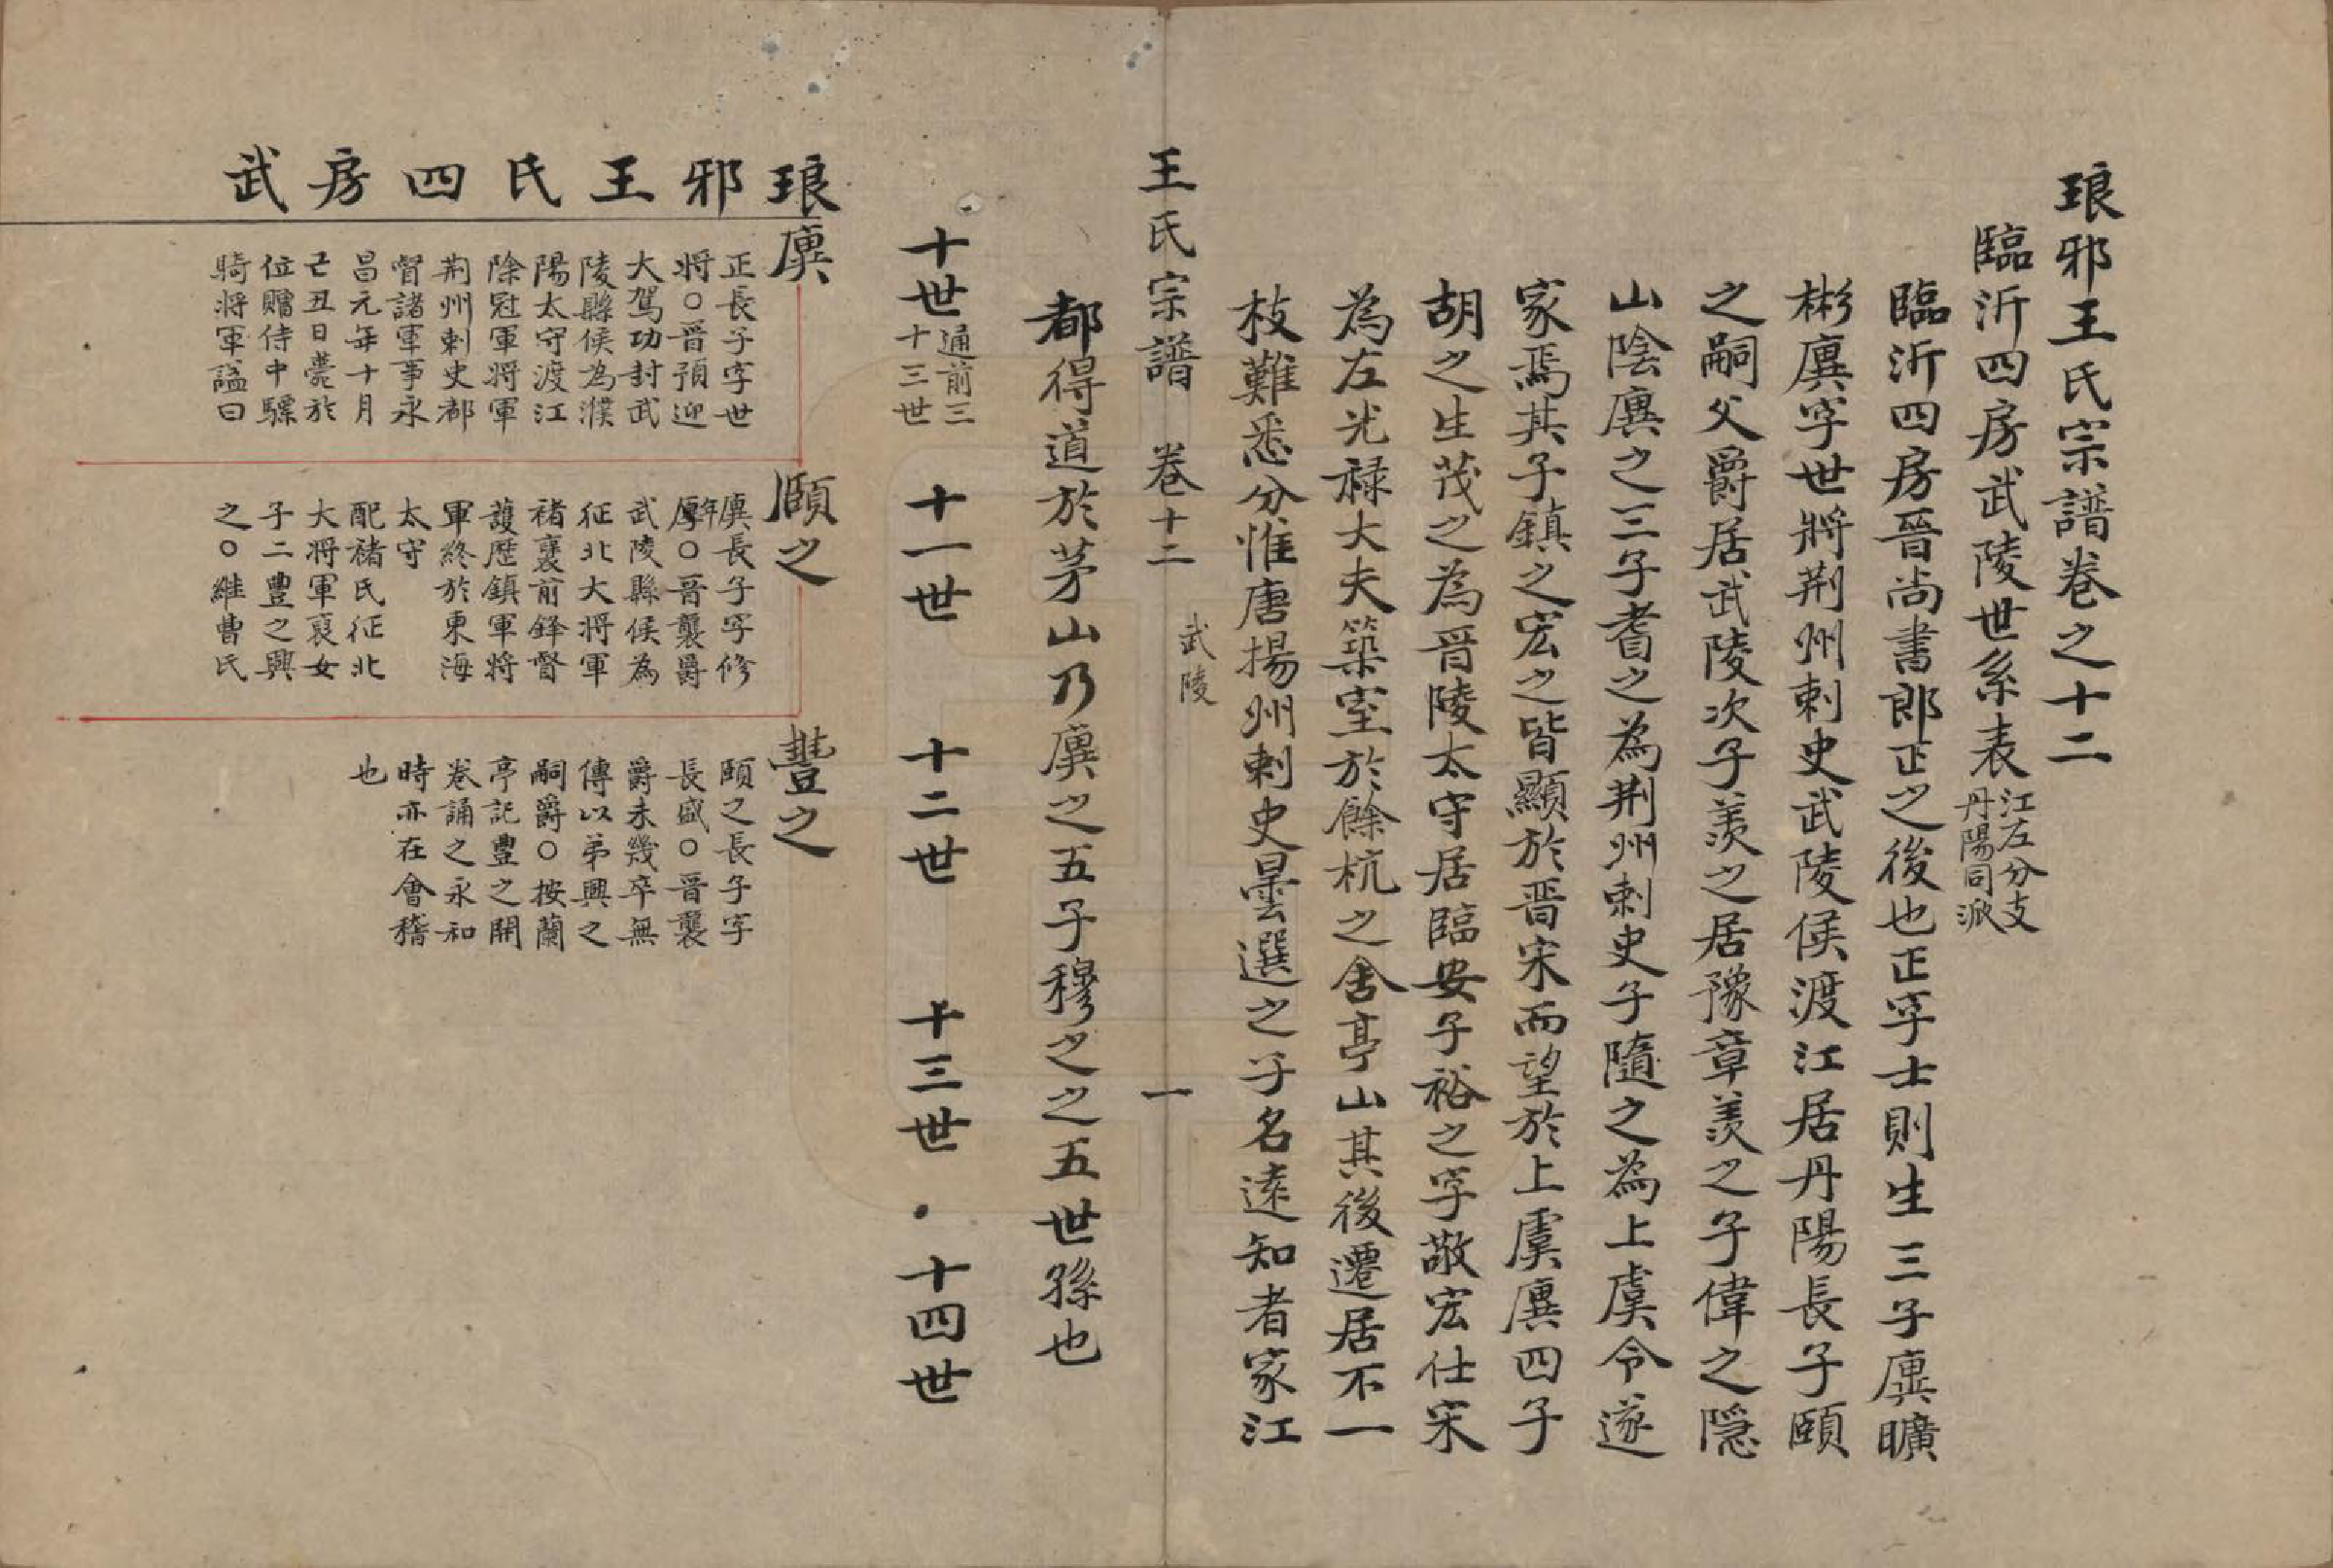 琅邪王氏宗譜卷之十二
臨沂四房武陵世系表
江左分支
丹陽同派
臨沂四房晉尚書郎正之後也正字士則生三子廙曠
彬廙字世將荆州刺史武陵侯渡江居丹陽長子頤
之嗣父爵居武陵次子羨之居豫章羨之子偉之隱
山陰廙之三子耆之為荆州刺史子隨之為上虞令遂
家焉其子鎮之宏之皆顯於晋宋而望於上虞廙四子
胡之生茂之為晋陵太守居臨安子裕之字敬宏仕宋
為左光禄大夫築室於餘杭之舍亭山其後遷居不一
枝難悉分惟唐揚州刺史曇選之子名遠知者家江
王氏宗譜 卷十二 武陵 一
都得道於茅山乃廙之五子穆之之五世孫也
十世 通前三十三世 十一世 十二世 十三世 十四世
琅邪王氏四房武
廙
正長子字世
將○晋預迎
大駕功封武
陵縣侯為濮
陽太守渡江
除冠軍將軍
荆州刺史都
督諸軍事永
昌元年十月
己丑日薨於
位贈侍中驃
騎將軍諡曰
頤之
廙長子字修
年厚○晋襲爵
武陵縣侯為
征北大將軍
褚裒前鋒督
護歷鎮軍將
軍終於東海
太守
配褚氏征北
大將軍裒女
子二豐之興
之○継曹氏
豐之
頤之長子字
長盛○晋襲
爵未幾卒無
傳以弟興之
嗣爵○按蘭
亭記豐之開
卷誦之永和
時亦在會稽
也